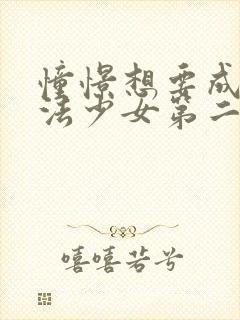 憧憬想要成
法少女第二
嘻嘻若兮